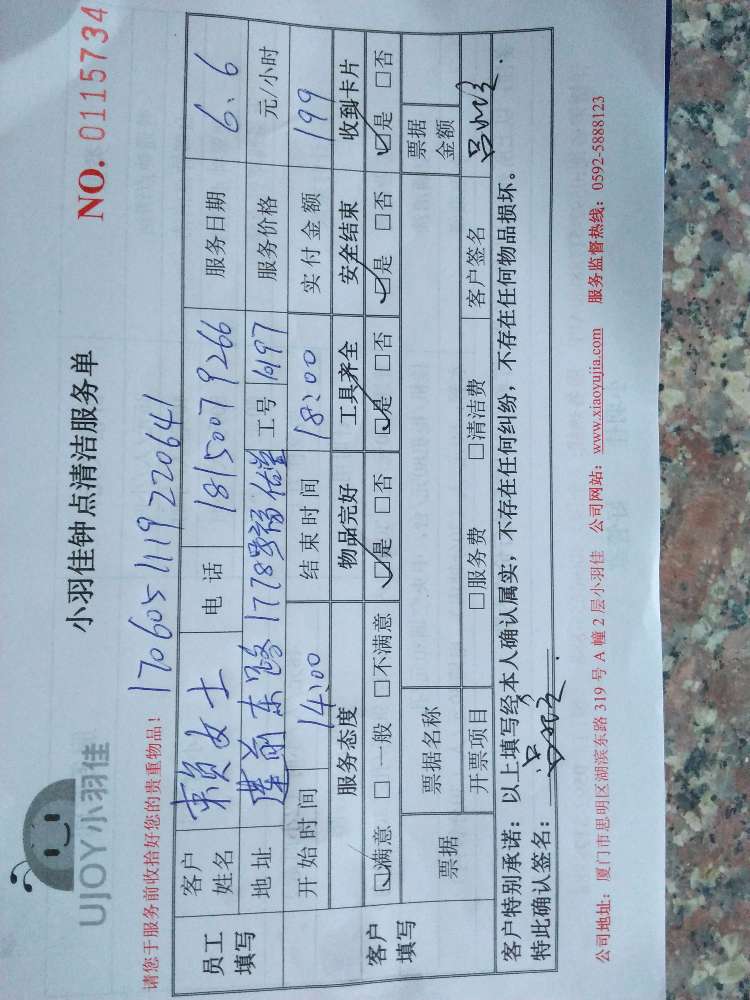 UJOY小羽佳
小羽佳钟点清洁服务单
NO. 0115734
请您于服务前收拾好您的贵重物品！ 1706051119220641
员工填写 客户姓名 赖女士 电话 18150079266 服务日期 6.6
地址 莲前东路1778号 工号 服务价格 元/小时
开始时间 14:00 结束时间 18:00 实付金额 199
客户填写 服务态度 物品完好 工具齐全 安全结束 收到卡片
☑满意 □一般 □不满意 ☑是 □否 ☑是 □否 ☑是 □否 ☑是 □否
票据 票据名称 票据金额
开票项目 □服务费 □清洁费 客户签名
客户特别承诺：以上填写经本人确认属实，不存在任何纠纷，不存在任何物品损坏。
特此确认签名：
公司地址：厦门市思明区湖滨东路 319 号 A 幢 2 层小羽佳 公司网站：www.xiaoyujia.com 服务监督热线：0592-5888123